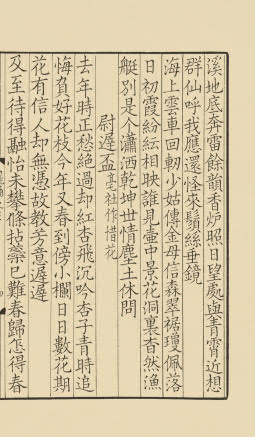 溪地底奔雷餘韻香爐照日望處與青霄近想
群仙呼我應還怪來鬚絲垂鏡
海上雲車回軔少姑傳金母信森翠裾瓊佩落
日初霞紛紜相映誰見壺中景花洞裏杳然漁
艇別是个瀟洒乾坤世情塵土休問
尉遲盃亳社作惜花
去年時正愁絕過却紅杏飛沉吟杏子青時追
悔負好花枝今年又春到傍小欄日日數花期
花有信人却無憑故教芳意遲遲
及至待得融怡未攀條拈蘂已歎春歸怎得春